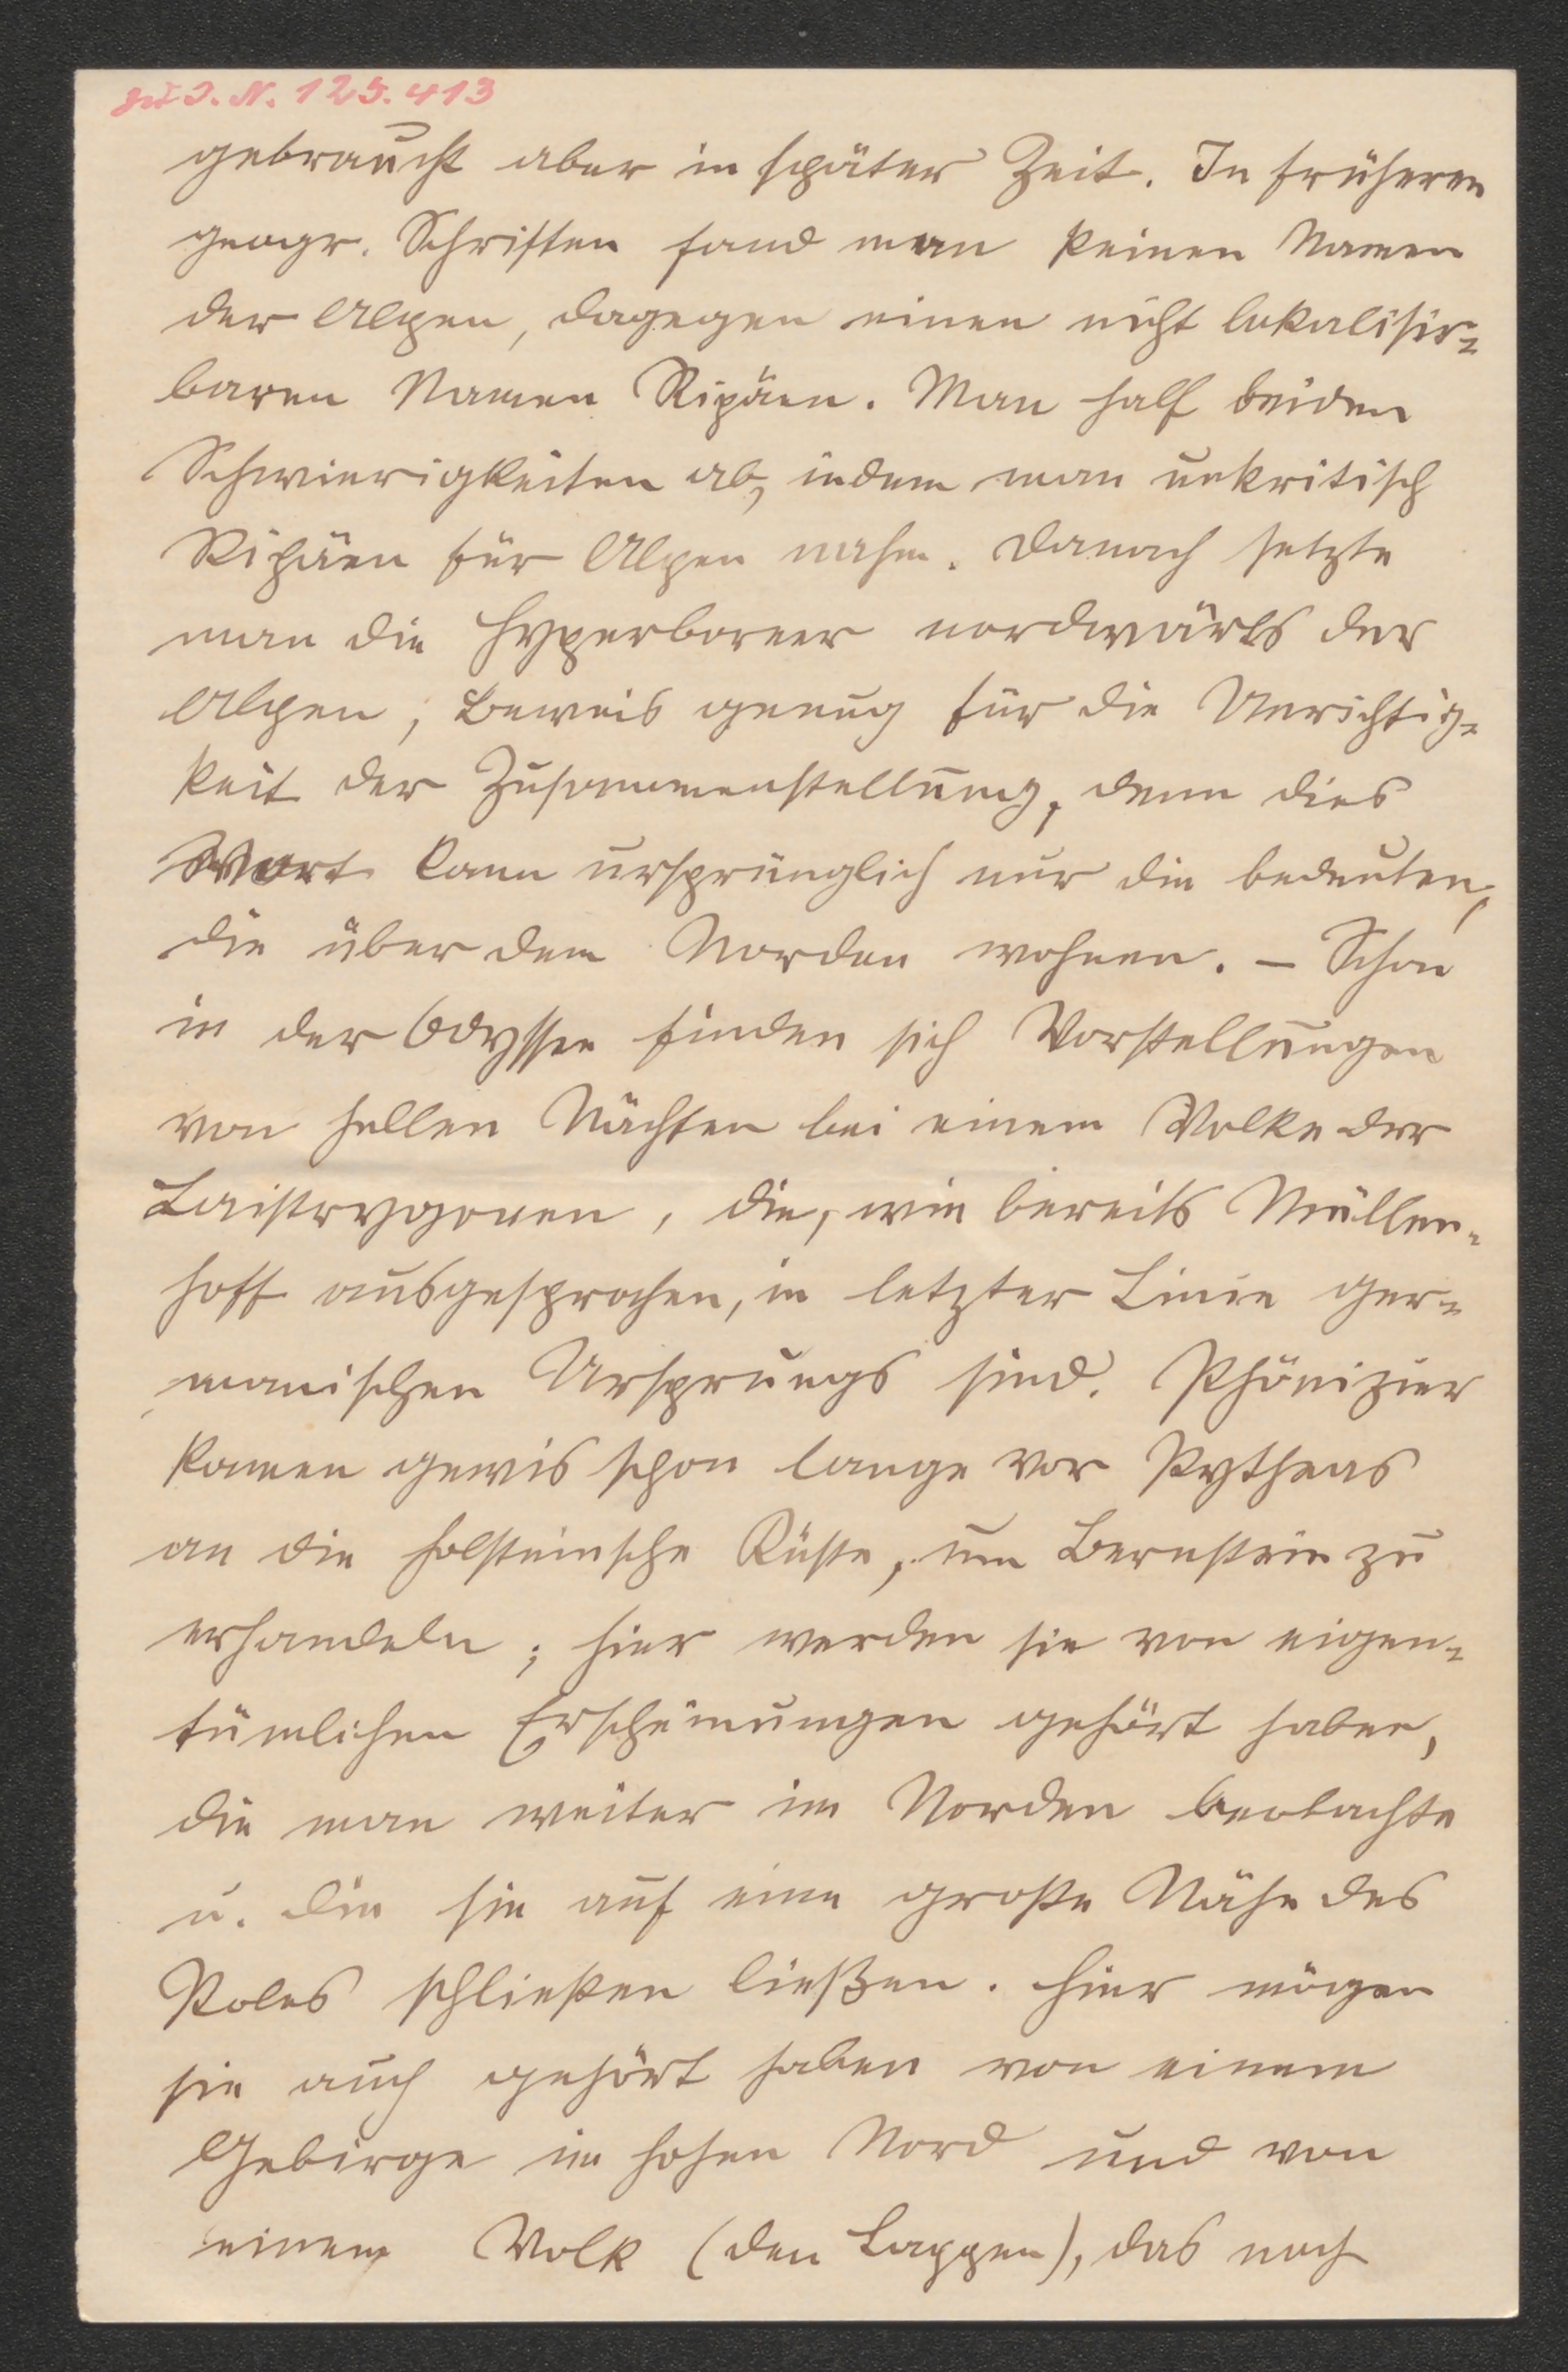 zu I. N. 125.413
gebraucht aber in später Zeit. In früheren
geogr. Schriften fand man keinen Namen
der Alpen, dagegen einen nicht lokalisir-
baren Namen Ripäen. Man half beiden
Schwierigkeiten ab, indem man unkritisch
Ripäen für Alpen nahm. Danach setzte
man die Hyperboreer nordwärts der
Alpen, Beweis genug für die Unrichtig-
keit der Zusammenstellung, denn dies
Wort kann ursprünglich nur die bedeuten,
die über dem Norden wohnen. – Schon
in der Odyssee finden sich Vorstellungen
von hellen Nächten bei einem Volke der
Laistrygonen, die, wie bereits Müllen-
hoff ausgesprochen, in letzter Linie ger-
manischen Ursprungs sind. Phönizier
kamen gewis schon lange vor Pytheas
an die holsteinsche Küste, um Bernstein zu
erhandeln; hier werden sie von eigen-
tümlichen Erscheinungen gehört haben,
die man weiter im Norden beobachte
u. die sie auf eine große Nähe des
Poles schließen ließen. Hier mögen
sie auch gehört haben von einem
Gebirge im hohen Nord und von
einem Volk (den Lappen), das noch